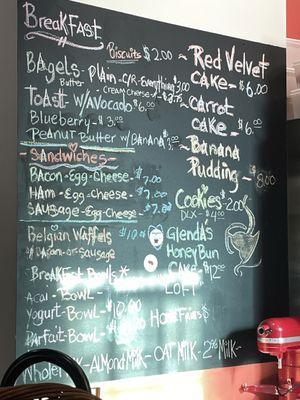 BreakFast
Biscuits $2.00
Bagels - Plain - C/R - Everything $3.00
Butter Cream Cheese - $3.75
Toast w/Avocado $6.00
Blueberry - $3.00
Peanut Butter w/Banana $3.
- Sandwiches -
Bacon - Egg - Cheese - $7.00
Ham - Egg - Cheese - $7.00
Sausage - Egg - Cheese - $7.00
Belgian Waffels
w/Bacon - or - Sausage
BreakFast Bowls*
Acai - Bowl -
Yogurt - Bowl - $10.00
Parfait - Bowl -
Home Fries $
Whole - Almond Milk - OAT MILK - 2% Milk -
~ Red Velvet
Cake - $6.00
~ Carrot
Cake - $6.00
~ Banana
Pudding - $8.00
Cookies $2.00
DLX - $4.00
Glendas
Honey Bun
Cake $12.00
LOFT